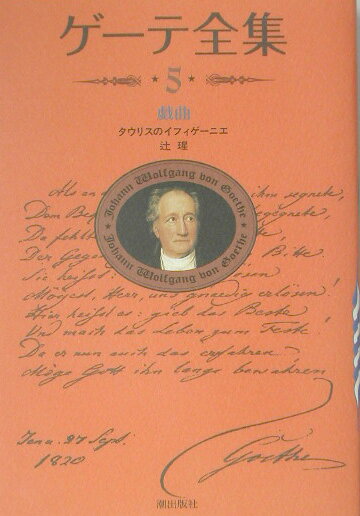 ゲーテ全集
5
戯曲
タウリスのイフィゲーニエ
辻 瑆
Johann Wolfgang von Goethe
Johann Wolfgang von Goethe
Als an ihm segnete,
Dem
Da
Der Bitte.
Sie heisset:
Herr, uns gnaedig erlösen!
Hier heisset es: gieb das Beste
Und mach das Leben zum Feste.
Da er nun auch das erfahren
Möge Gott ihn lange bewahren
Jena. 27 Sept.
1820
Goethe
潮出版社